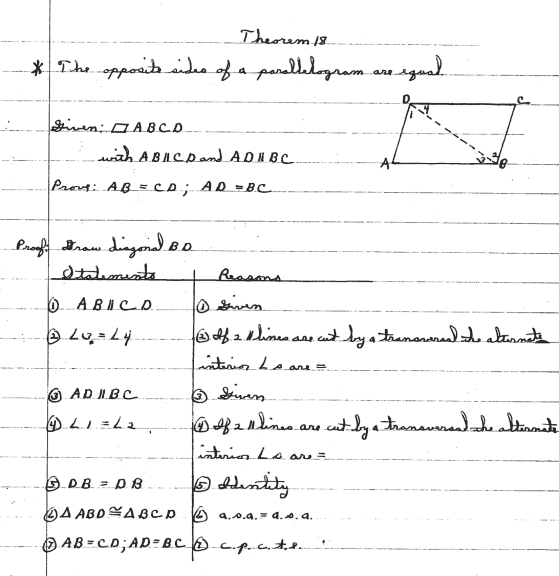 Theorem 18
* The opposite sides of a parallelogram are equal.
Given: ▱ ABCD
with AB∥CD and AD∥BC
Prove: AB = CD; AD = BC
D C
1 4
3 2
A B
Proof: Draw diagonal BD
Statements Reasons
① AB∥CD ① Given
② ∠3 = ∠4 ② If 2 ∥ lines are cut by a transversal the alternate
interior ∠s are =
③ AD∥BC ③ Given
④ ∠1 = ∠2 ④ If 2 ∥ lines are cut by a transversal the alternate
interior ∠s are =
⑤ DB = DB ⑤ Identity
⑥ △ABD ≅ △BCD ⑥ a.s.a. = a.s.a.
⑦ AB = CD; AD = BC ⑦ c.p.c.t.e.